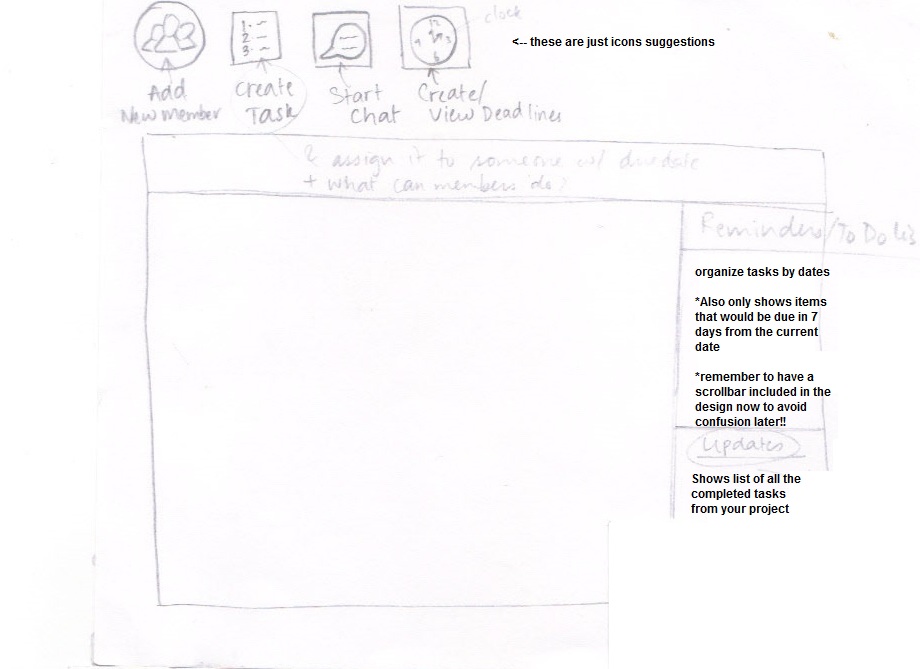 clock
<-- these are just icons suggestions
1.
2.
3.
12
9 3
6
Add
New member
Create
Task
Start
Chat
Create/
View Deadlines
& assign it to someone w/ duedate
+ what can members do?
Reminders/To Do
organize tasks by dates
*Also only shows items
that would be due in 7
days from the current
date
*remember to have a
scrollbar included in the
design now to avoid
confusion later!!
Updates
Shows list of all the
completed tasks
from your project